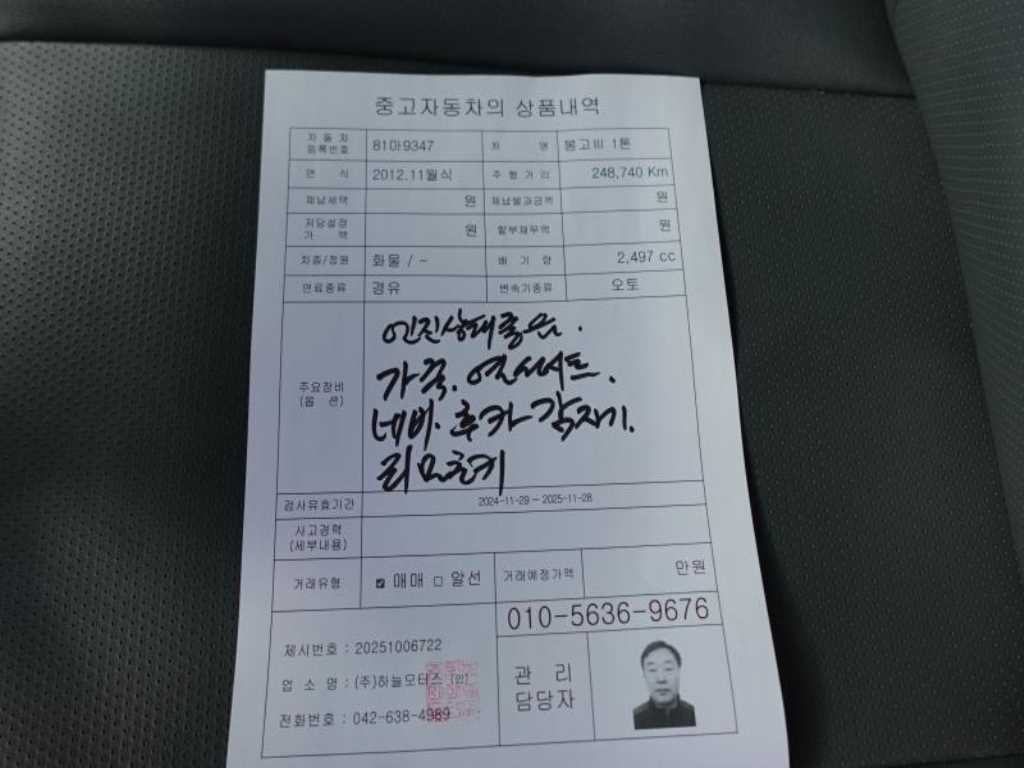 중고자동차의 상품내역
자 동 차
등록번호
81마9347
차 명
봉고Ⅲ 1톤
연 식
2012.11월식
주 행 거 리
248,740 Km
체납세액
원
체납벌과금액
원
저당설정
가 액
원
할부채무액
원
차종/정원
화물 / -
배 기 량
2,497 cc
연료종류
경유
변속기종류
오토
주요장비
(옵 션)
엔진상태좋음.
가죽. 열선시트.
네비. 후카 감지기.
리모콘키
검사유효기간
2024-11-29 ~ 2025-11-28
사고경력
(세부내용)
거래유형
☑ 매매 □ 알선
거래예정가액
만원
010-5636-9676
제시번호 : 20251006722
업 소 명 : (주)하늘모터스 (인)
전화번호 : 042-638-4989
관 리
담당자